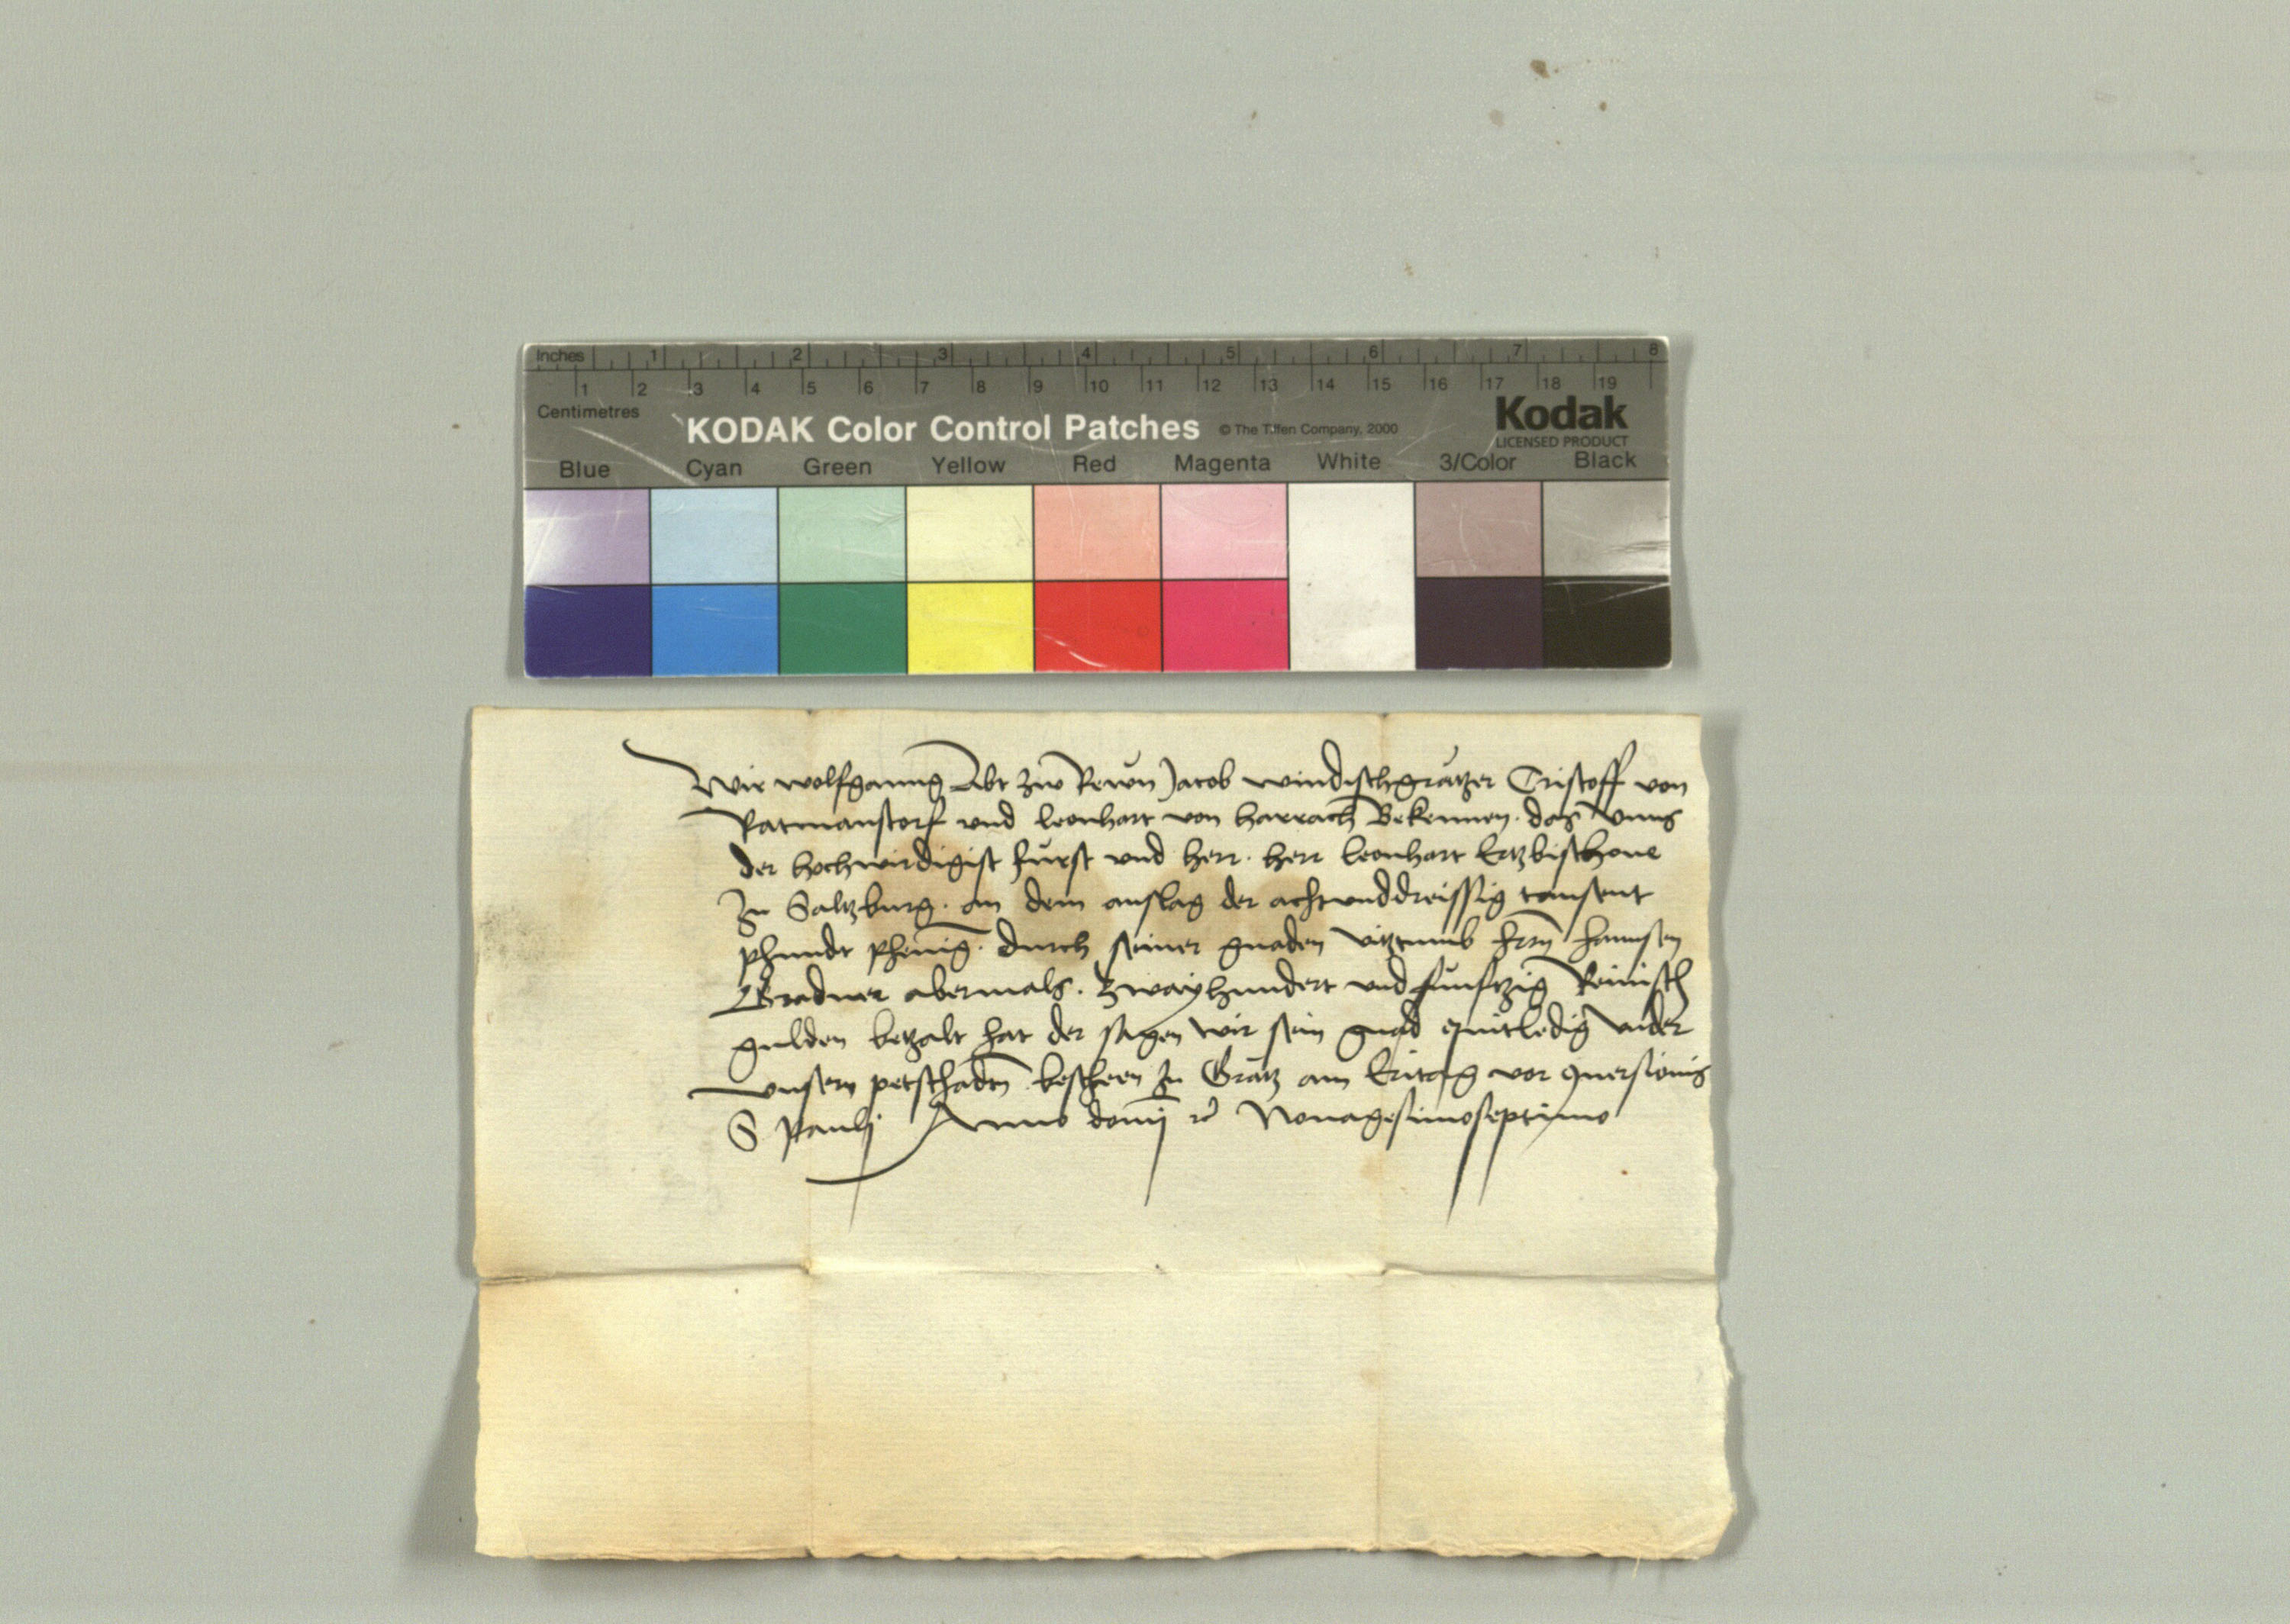 Inches 1 2 3 4 5 6 7 8
1 2 3 4 5 6 7 8 9 10 11 12 13 14 15 16 17 18 19
Centimetres
KODAK Color Control Patches © The Tiffen Company, 2000 Kodak
LICENSED PRODUCT
Blue Cyan Green Yellow Red Magenta White 3/Color Black
Wir wolfganng Abt zw Rewn Jacob windischgrátzer Cristoff von
Ratmanstorf vnd leonhart von harrach Bekennen. das vnns
der hochwirdigist fúrst vnd herr. herr leonhart Ertzbischoue
zu Saltzburg. an dem anslag der achtunddreissig tausent
phundt phenig. durch seiner gnaden vitztumb hern hannsen
Gradner abermals. zwayhundert vnd funftzig Reinisch
gulden betzalt hat der sagen wir sein gnad quitledig vnder
vnsern petschadn. bescheen zu Grátz am Eritag vor 9uersionis
S Paulj Anno domj rc Nonagesimoseptimo